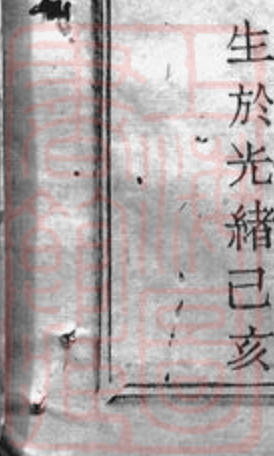 生於光緒己亥